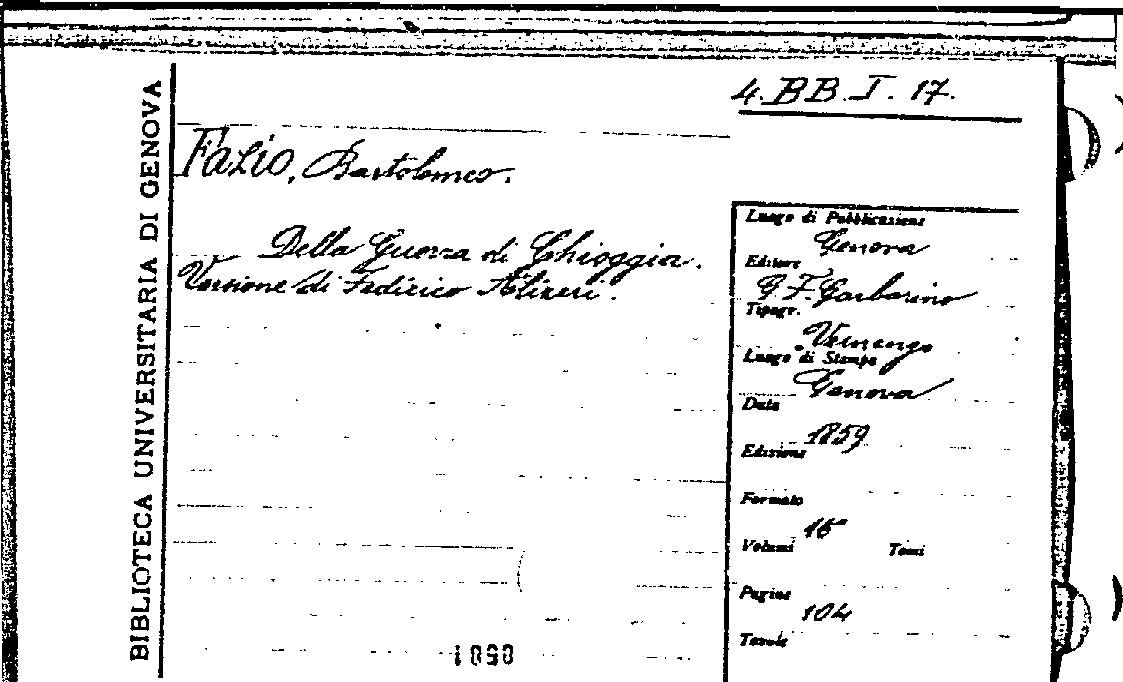 BIBLIOTECA UNIVERSITARIA DI GENOVA
4.BB.I.17.
Fazio, Bartolomeo.
Della Guerra di Chioggia.
Versione di Federico Alizeri.
Luogo di Pubblicazione
Genova
Editore
G. F. Garbarino
Tipogr.
Luogo di Stampa
Genova
Data
1859
Edizione
Formato
16°
Volumi Tomi
Pagine
104
Tavole